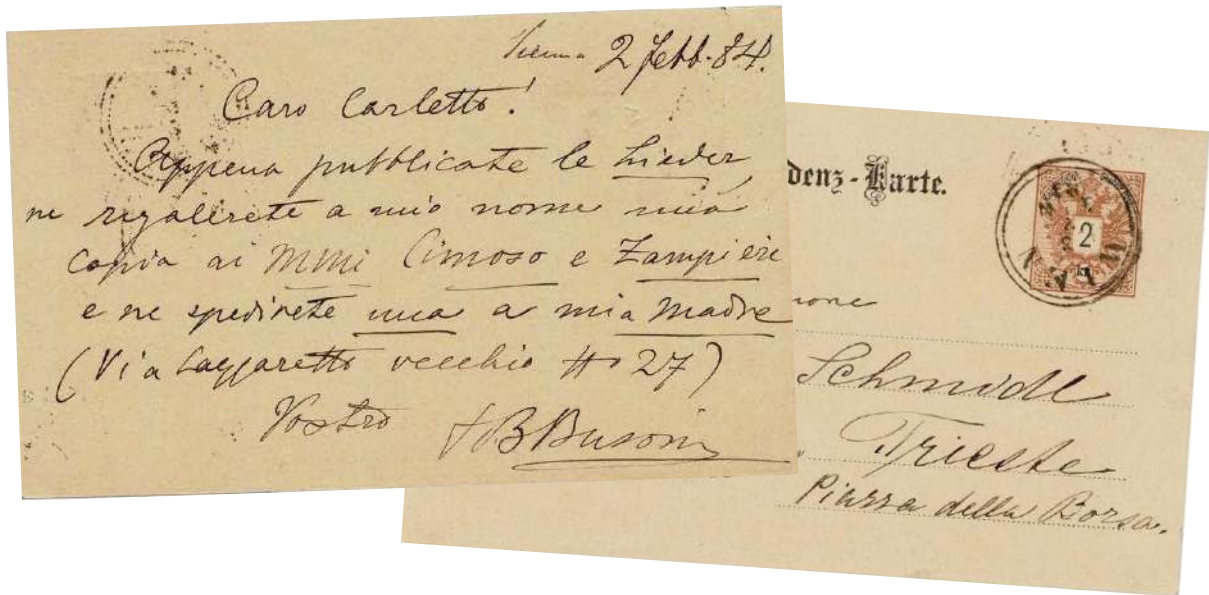 Vienna 2 febb. 84.
Caro Carletto!
Appena pubblicate le Lieder,
ne regalerete a mio nome una
copia ai Mmi Cimoso e Zampieri
e ne spedirete una a mia Madre
(Via Lazzaretto vecchio No 27)
Vostro FBBusoni
denz-Karte.
2
Schmidl
Trieste
Piazza della Borsa.